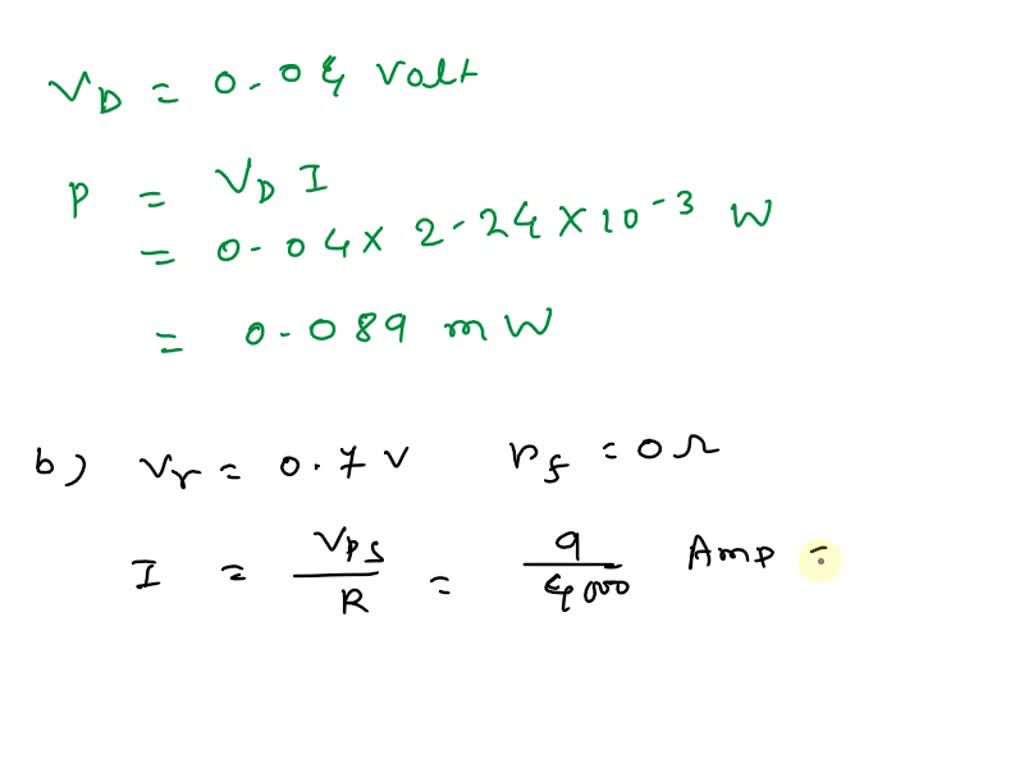 V_D = 0.04 Volt
P = V_D I
= 0.04 × 2.24 × 10^-3 W
= 0.089 mW
b) V_r = 0.7 V r_f = 0 Ω
I = V_PS / R = 9 / 4000 Amp =